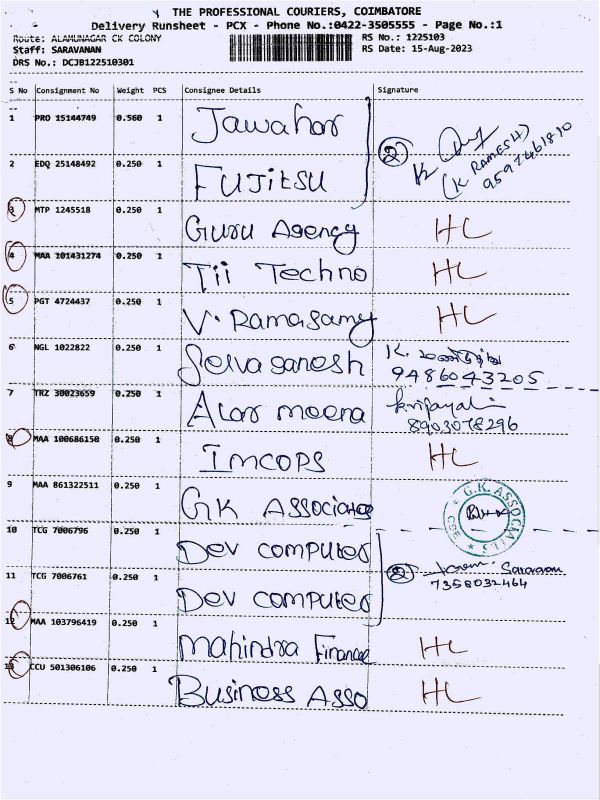 THE PROFESSIONAL COURIERS, COIMBATORE
Delivery Runsheet - PCX - Phone No.:0422-3505555 - Page No.:1
Route: ALAMUNAGAR CK COLONY
RS No.: 1225103
Staff: SARAVANAN
RS Date: 15-Aug-2023
DRS No.: DCJB122510301
S No Consignment No Weight PCS Consignee Details Signature
1 PRO 15144749 0.560 1 Jawahar
2 K (K RAMESH) 9597461810
2 EDQ 25148492 0.250 1 FUJITSU
3 MTP 1245518 0.250 1 Guru Agency HC
4 MAA 101431274 0.250 1 Tii Techno HC
5 PGT 4724437 0.250 1 V. Ramasamy HC
6 NGL 1022822 0.250 1 Selvaganesh K.
9486043205
7 TRZ 30023659 0.250 1 Alar meena
8903078296
8 MAA 100686150 0.250 1 IMCOPS HC
9 MAA 861322511 0.250 1 GK Associates G.K. ASSOCIATES CBE
10 TCG 7006796 0.250 1 Dev computer
2 Saravanan
7358032464
11 TCG 7006761 0.250 1 Dev computer
12 MAA 103796419 0.250 1 Mahindra Finance HC
13 CCU 501306106 0.250 1 Business Asso HC